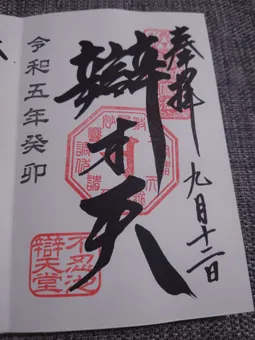 奉拝
辯才天
九月十二日
令和五年癸卯
不忍池
辯天堂